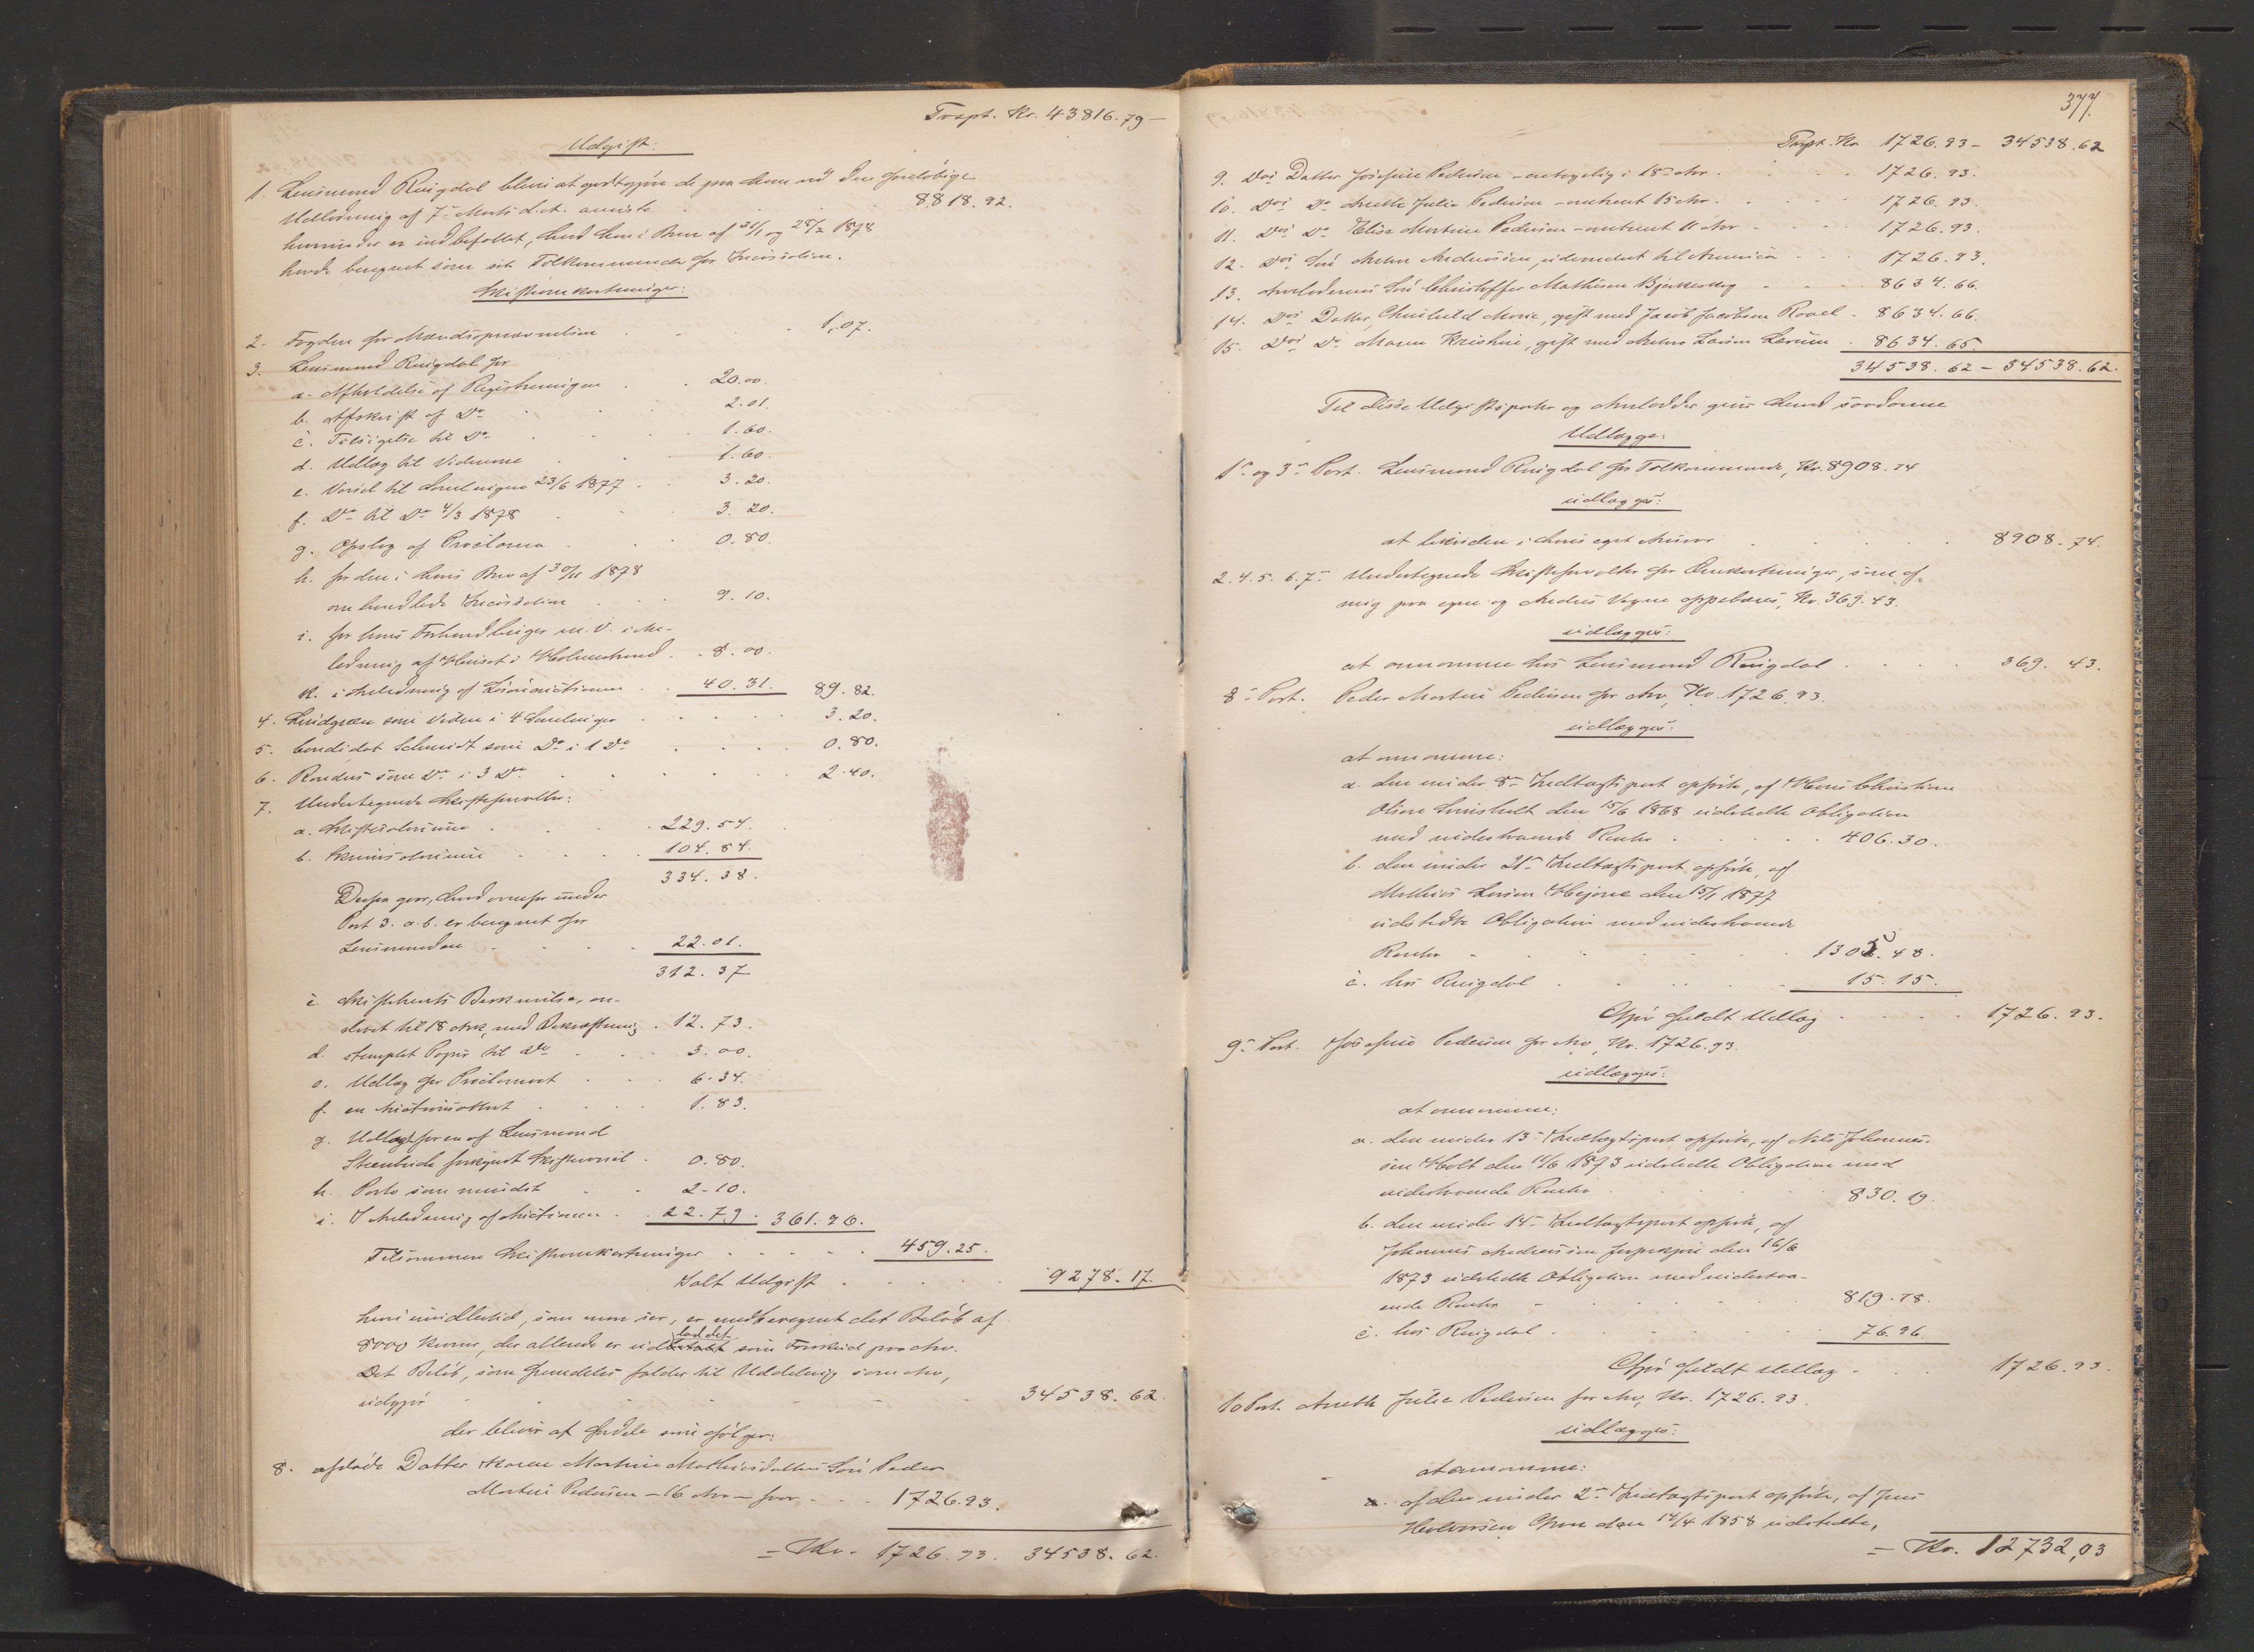 Trspt. Kr. 43816.79 -
Udgift:
1. Lensmand Ringdal bliver at godtgjøre de paa ham ved den foreløbige
Udlodning af 7de Marts d. A. anviste . . . 8818.92.
hvorunder er indbefattet, hvad han i Brev af 31/1 og 28/2 1878
havde beregnet som sit Tilkommende for Incassation.
Skifteomkostninger:
2. Fogden for Mandsopnævnelsen . . . 1,07.
3. Lensmand Ringdal for
a. Afholdelse af Registreringen . . 20.00.
b. Afskrift af Do . . . 2.01.
c. Tilsigelse til Do . . . 1.60.
d. Udlæg til Vidnerne . . . 1.60.
e. Varsel til Samlingen 23/6 1877 . . 3.20.
f. Do til Do 4/3 1878 . . . 3.20.
g. Opslag af Proclama . . . 0.80.
h. for den i hans Brev af 30/11 1878
omhandlede Incassation . . . 9.10.
i. for hans Forhandlinger m. V. i An-
ledning af Huset i Holmestrand . . 8.00.
k. i Anledning af Løsøreauctionen . . 40.31. 89.82.
4. Lindgreen som Vidne i 4 Samlinger . . . 3.20.
5. Candidat Schmidt som Do i 1 Do . . . 0.80.
6. Randers som Do i 3 Do . . . 2.40.
7. Undertegnede Skifteforvalter:
a. Skiftesalarium . . . 229.54.
b. Skriversalarium . . . 104.84.
334.38.
Derfra gaar, hvad ovenfor under
Post 3. a. b. er beregnet for
Lensmanden . . . 22.01.
312.37
c. Skiftebrevets Beskrivelse, an-
slaaet til 18 Ark, med Bekræftning . 12.73.
d. stemplet Papir til Do . . . 3.00.
e. Udlæg for Proclamaet . . . 6.34.
f. en Auctionsattest . . . 1.83.
g. Udlagt for en af Lensmand
Steenbuch forkyndt Skiftevarsel . 0.80.
h. Porto som mindst . . 2.10.
i. I Anledning af Auctionen . . 22.79. 361.96.
Tilsammen Skifteomkostninger . . . 459.25.
Ialt Udgift . . . 9278.17.
hvori imidlertid, som man ser, er medberegnet det Beløb af
8000 Kroner, der allerede er udloddet som Forskud paa Arv.
Det Beløb, som fremdeles falder til Uddeling som Arv,
udgjør . . . 34538.62.
der bliver at fordele som følger:
8. afdøde Datter Maren Martine Mathisdatters Søn Peder
Martin Pedersen - 16 Aar - faar . . . 1726.93.
= Kr. 1726.93. 34538.62.
377.
Trspt. Kr. 1726.93 - 34538.62
9. Dos Datter Josefine Pedersen - antagelig i 18de Aar . . . 1726.93.
10. Dos Do Anette Julie Pedersen - omtrent 15 Aar . . . 1726.93.
11. Dos Do Elise Martine Pedersen - omtrent 11 Aar . . . 1726.93.
12. Dos Søn Anton Andreassen, udvandret til Amerika . . . 1726.93.
13. Arveladerens Søn Christoffer Mathisen Bjerkeskog . . . 8634.66.
14. Dos Datter, Gunhild Marie, gift med Jacob Jacobsen Raael . 8634.66.
15. Dos Do Maren Kristine, gift med Anton Larsen Lerum . 8634.65.
34538.62 - 34538.62.
Til disse Udgiftsposter og Arvelodder gives hermed saadanne
Udlægge:
1ste og 3die Post. Lensmand Ringdal for Tilkommende, Kr. 8908.74
udlægges:
at beholde i hans eget Ansvar . . . 8908.74.
2. 4. 5. 6. 7de Undertegnede Skifteforvalter for Omkostninger, som af
mig paa egne og Andres Vegne oppebæres, Kr. 369.43.
udlægges:
at annamme hos Lensmand Ringdal . . . 369.43.
8de Post. Peder Martin Pedersen for Arv, Kr. 1726.93.
udlægges:
at annamme:
a. den under 8de Indtægtspost opførte, af Hans Christian
Olsen den 15/6 1868 udstedte Obligation
med vidersstaaende Renter . . . 406.30.
b. den under 21de Indtægtspost opførte, af
Mathias Larsen den 15/1 1877
udstedte Obligation med vedstaaende
Renter . . . 1305.48.
c. hos Ringdal . . . 15.15.
Gjør fuldt Udlæg . . . 1726.93.
9de Post. Josefine Pedersen for Arv, Kr. 1726.93.
udlægges:
at annamme:
a. den under 13de Indtægtspost opførte, af Nils Johannes-
sen Holt den 11/6 1873 udstedte Obligation med
vedstaaende Renter . . . 830.19.
b. den under 14de Indtægtspost opførte, af
Johannes Andreassen den 16/6
1873 udstedte Obligation med vedstaa-
ende Renter . . . 819.78.
c. hos Ringdal . . . 76.96.
Gjør fuldt Udlæg . . . 1726.93.
10de Post. Anette Julie Pedersen for Arv, Kr. 1726.93.
udlægges:
at annamme:
a. af den under 2den Indtægtspost opførte, af Jens
Halvorsen den 14/4 1858 udstedte,
= Kr. 12732,03